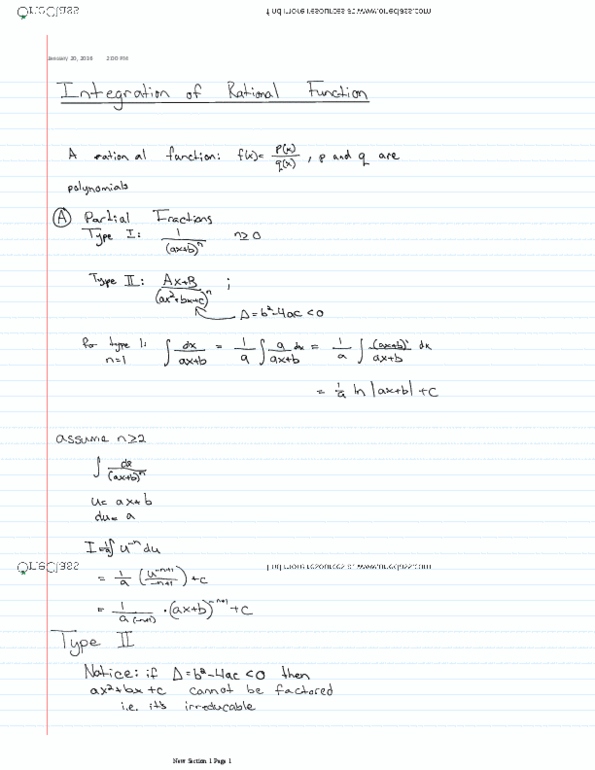 OneClass find more resources at www.oneclass.com
January 20, 2016 2:00 PM
Integration of Rational Function
A rational function: f(x)= p(x)/q(x) , p and q are
polynomials
(A) Partial Fractions
Type I: 1/(ax+b)^n n≥0
Type II: Ax+B/(ax²+bx+c)^n ;
Δ=b²-4ac<0
for type 1: ∫ dx/ax+b = 1/a ∫ a/ax+b dx = 1/a ∫ (ax+b)'/ax+b dx
n=1
= 1/a ln |ax+b| +C
assume n≥2
∫ dx/(ax+b)^n
u= ax+b
du= a
I=1/a∫ u^-n du
OneClass find more resources at www.oneclass.com
= 1/a (u^-n+1/-n+1) +C
= 1/a(-n+1) · (ax+b)^-n+1 +C
Type II
Notice: if Δ=b²-4ac <0 then
ax²+bx+c cannot be factored
i.e. it's irreducable
New Section 1 Page 1